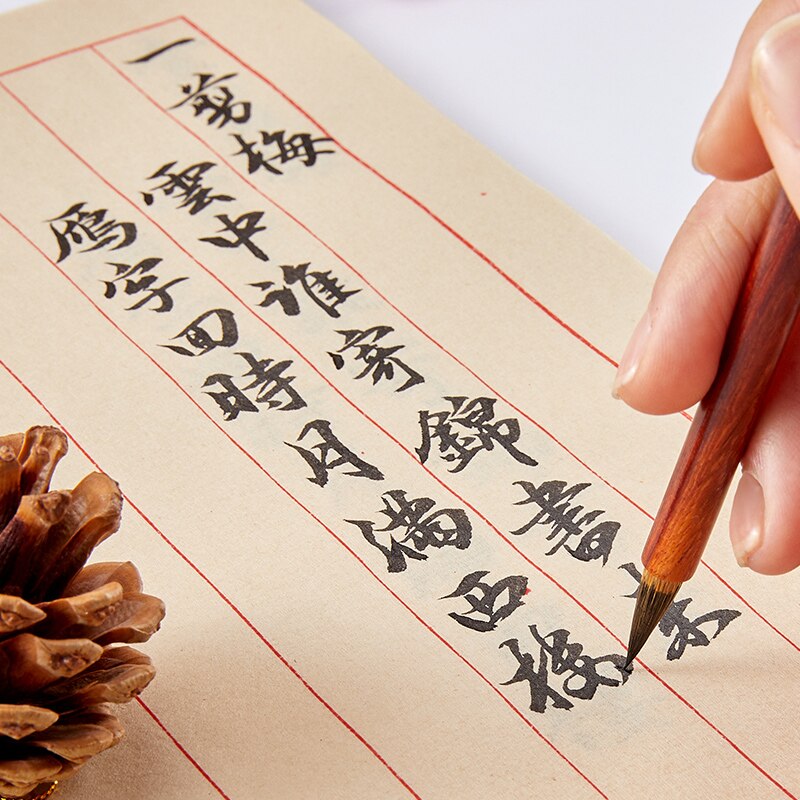 一剪梅
雲中誰寄錦書来
鴈字回時月滿西楼